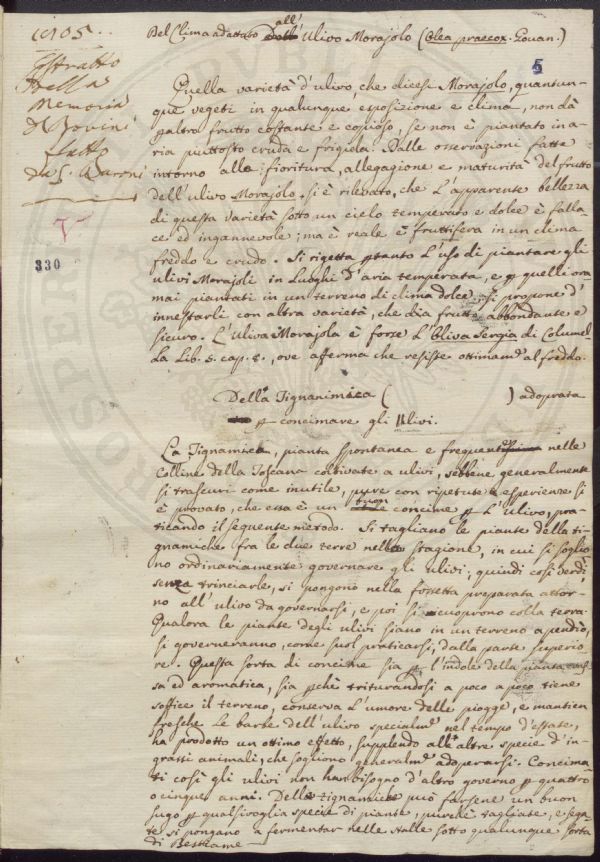 1905..
Estratto
Della
Memoria
fatto
330
5
Del Clima adattato all' Ulivo Morajolo (Olea praecox. Gouan.)
Quella varietà d'ulivo che dicesi Morajolo, quantun-
que vegeti in qualunque esposizione e clima, non dà
paltro frutto costante e copioso, se non è piantato in a-
ria piuttosto cruda e frigida. Dalle osservazioni fatte
intorno alla fioritura, allegagione e maturità del frutto
dell'ulivo Morajolo. si è rilevato, che l'apparente bellezza
di questa varietà sotto un cielo temperato e dolce è falla-
ce ed ingannevole; ma è reale è fruttifera in un clima
freddo e crudo. Si rigetta ptanto l'uso di piantare gli
ulivi Morajoli in Luoghi d'aria temperata, e p quelli ora-
mai piantati in un terreno di clima dolce, si propone d'
innestarli con altra varietà, che dia frutto abbondante e
sicuro. L'uliva Morajola è forse l'Oliva Sergia di Colume-
la Lib. 5. cap. 8., ove afferma che resiste ottimamd al freddo.
Della Tignamica ( ) adoprata
p concimare gli Ulivi.
La Tignamica, pianta spontanea e frequent nelle
Colline della Toscana coltivate a ulivi, sebbene generalmente
si trascuri come inutile, pure con ripetute esperienze si
è provato, che essa è un buon concime p l'Ulivo, pra-
ticando il seguente metodo. Si tagliano le piante della ti-
gnamiche fra le due terre nella stagione, in cui si soglio-
no ordinariamente governare gli ulivi; quindi così verdi
senza trinciarle, si pongono nella fossetta preparata attor-
no all'ulivo da governarsi, e poi si ricuoprono colla terra.
Qualora le piante degli ulivi siano in un terreno a pendio,
si governeranno, come suol praticarsi, dalla parte superio-
re. Questa sorta di concime sia p l'indole della pianta
sa ed aromatica, sia pchè triturandosi a poco a poco tiene
soffice il terreno, conserva l'umore delle piogge, e mantien
fresche le barbe dell'ulivo specialmd nel tempo d'estate,
ha prodotto un ottimo effetto, supplendo all'altre specie d'in-
grassi animali, che sogliono generalmd adoperarsi. Concima-
ti così gli ulivi non han bisogno d'altro governo p quattro
o cinque anni. Delle tignamiche può farsene un buon
sugo p qualsivoglia specie di piante, purchè tagliate, e sega-
te si pongano a fermentar nelle stalle sotto qualunque sorta
di Bestiame